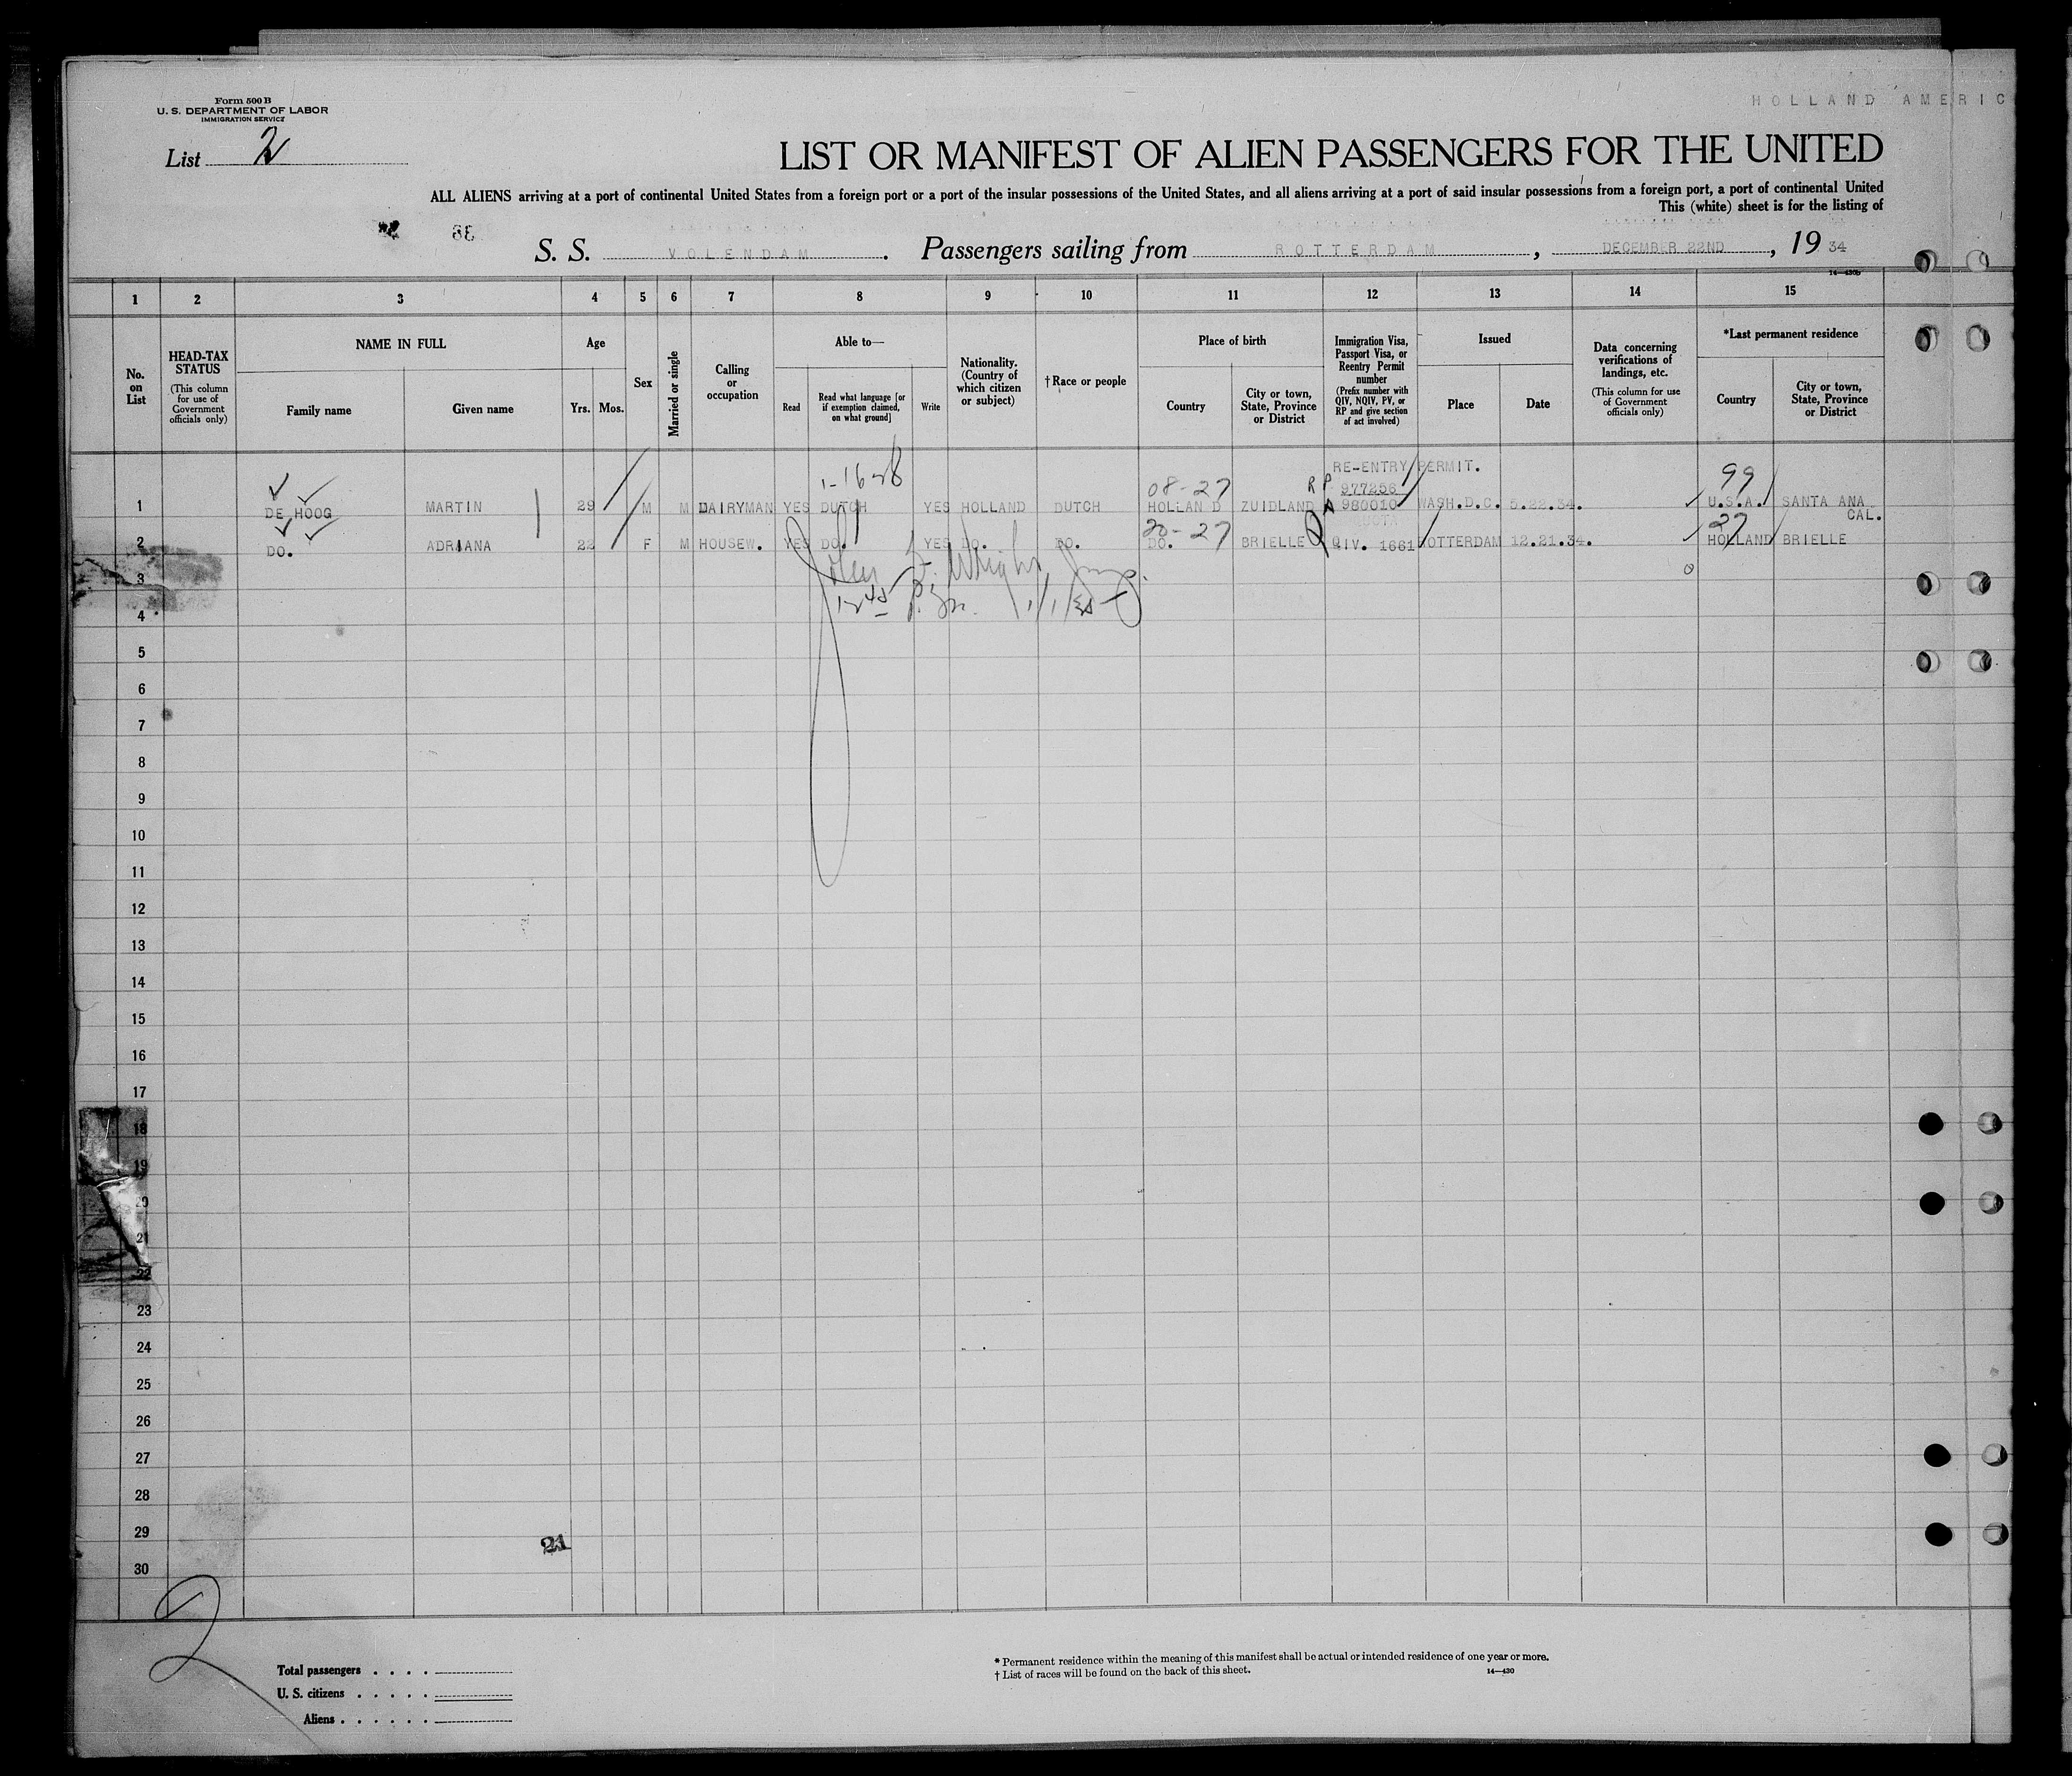 HOLLAND AMERIC
Form 500 B
U. S. DEPARTMENT OF LABOR
IMMIGRATION SERVICE
List 2
LIST OR MANIFEST OF ALIEN PASSENGERS FOR THE UNITED
ALL ALIENS arriving at a port of continental United States from a foreign port or a port of the insular possessions of the United States, and all aliens arriving at a port of said insular possessions from a foreign port, a port of continental United
This (white) sheet is for the listing of
S. S. VOLENDAM. Passengers sailing from ROTTERDAM, DECEMBER 22ND, 19 34
14—430b
1 2 3 4 5 6 7 8 9 10 11 12 13 14 15
No. on List
HEAD-TAX STATUS
(This column for use of Government officials only)
NAME IN FULL
Family name Given name
Age
Yrs. Mos.
Sex
Married or single
Calling or occupation
Able to—
Read
Read what language [or if exemption claimed, on what ground]
Write
Nationality. (Country of which citizen or subject)
†Race or people
Place of birth
Country
City or town, State, Province or District
Immigration Visa, Passport Visa, or Reentry Permit number
(Prefix number with QIV, NQIV, PV, or RP and give section of act involved)
Issued
Place Date
Data concerning verifications of landings, etc.
(This column for use of Government officials only)
*Last permanent residence
Country
City or town, State, Province or District
RE-ENTRY PERMIT.
08-27 R P 977256 99
1 DE HOOG MARTIN 29 M M DAIRYMAN YES DUTCH YES HOLLAND DUTCH HOLLAN D ZUIDLAND 980010 WASH.D.C. 5.22.34. U.S.A. SANTA ANA
CAL.
27
2 DO. ADRIANA 22 F M HOUSEW. YES DO. YES DO. DO. DO. BRIELLE QIV. 1661 OTTERDAM 12.21.34. HOLLAND BRIELLE
3
4
5
6
7
8
9
10
11
12
13
14
15
16
17
18
19
20
21
22
23
24
25
26
27
28
29
30
21
2
Total passengers . . . .
U. S. citizens . . . . .
Aliens . . . . . .
* Permanent residence within the meaning of this manifest shall be actual or intended residence of one year or more.
† List of races will be found on the back of this sheet.
14—430